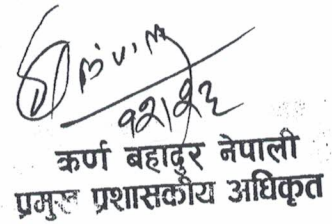 १२।१२
कर्ण बहादुर नेपाली
प्रमुख प्रशासकीय अधिकृत